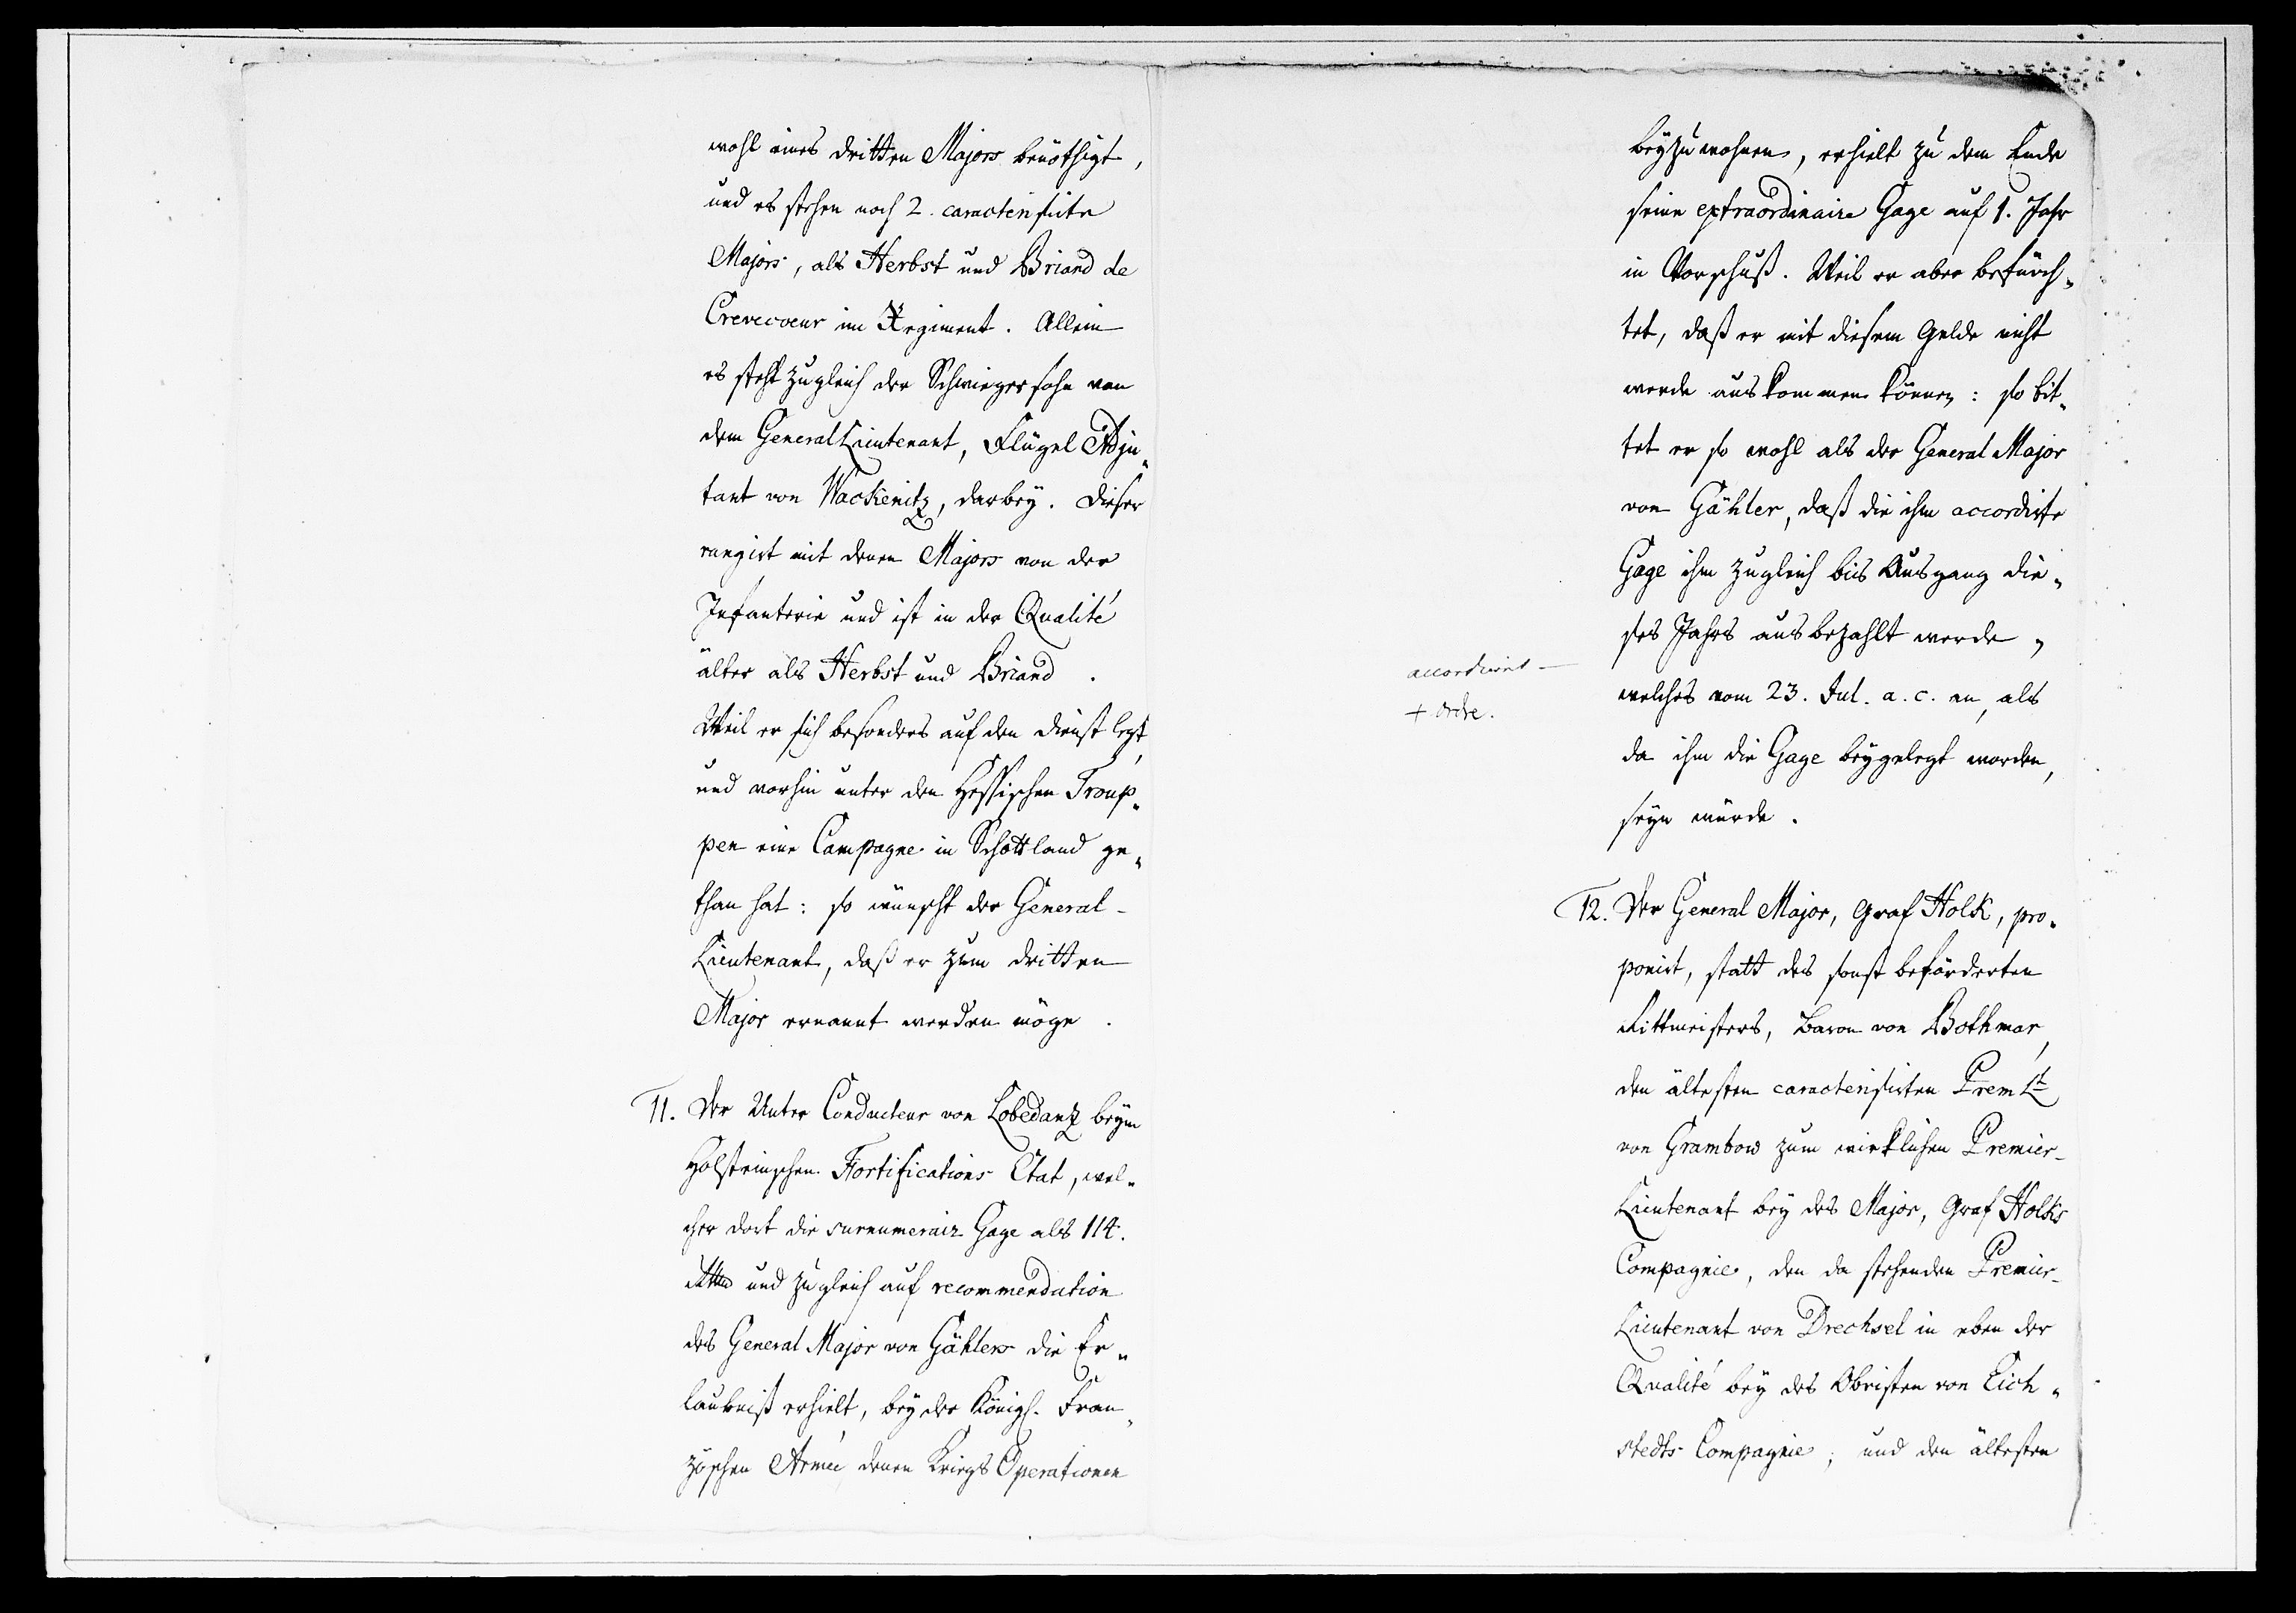 wohl eines dritten Majors benöthigt,
und es stehen noch 2. caracterisirte
Majors, als Herbst und Briand de
Crevecoeur im Regiment. Allein
es steht zugleich der Schwiegersohn von
dem General Lieutenant, Flügel Adju„
tant von Wackenitz, darbey. Dieser
rangirt mit denen Majors von der
Infanterie und ist in der Qualité
älter als Herbst und Briand.
Weil er sich besonders auf den Dienst legt,
und vorhin unter den Hessischen Troup„
pen eine Campagne in Schottland ge„
than hat: so wünscht der General-
Lieutenant, daß er zum dritten
Major ernannt werden möge.
11. Der Unter Conducteur von Lobedanz beym
Holsteinschen Fortifications Etat, wel„
cher dort die surnumerair Gage als 114.
und zugleich auf recommendation
des General Major von Gählers die Er„
laubniß erhielt, bey der Königl. Fran„
zöschen Armée denen Kriegs Operationen
beyzuwohnen, erhielt zu dem Ende
seine extraordinaire Gage auf 1. Jahr
in Vorschuß. Weil er aber befürch„
tet, daß er mit diesem Gelde nicht
werde auskommen können: so bit„
tet er so wohl als der General Major
von Gähler, daß die ihm accordirte
Gage ihm zugleich bis Ausgang die„
ses Jahrs ausbezahlt werde,
welches vom 23. Jul. a. c. an, als
da ihm die Gage beygelegt worden,
seyn würde.
accordirt -
+ Ordre.
12. Der General Major, Graf Holk, pro„
ponirt, statt des sonst beförderten
Rittmeisters, Baron von Bothmar,
den ältesten caracterisirten Prem Lt
von Grambow zum wirklichen Premier-
Lieutenant bey des Major, Graf Holks
Compagnie, den da stehenden Premier-
Lieutenant von Drechsel in eben der
Qualité bey des Obristen von Eich„
stedts Compagnie; und den ältesten